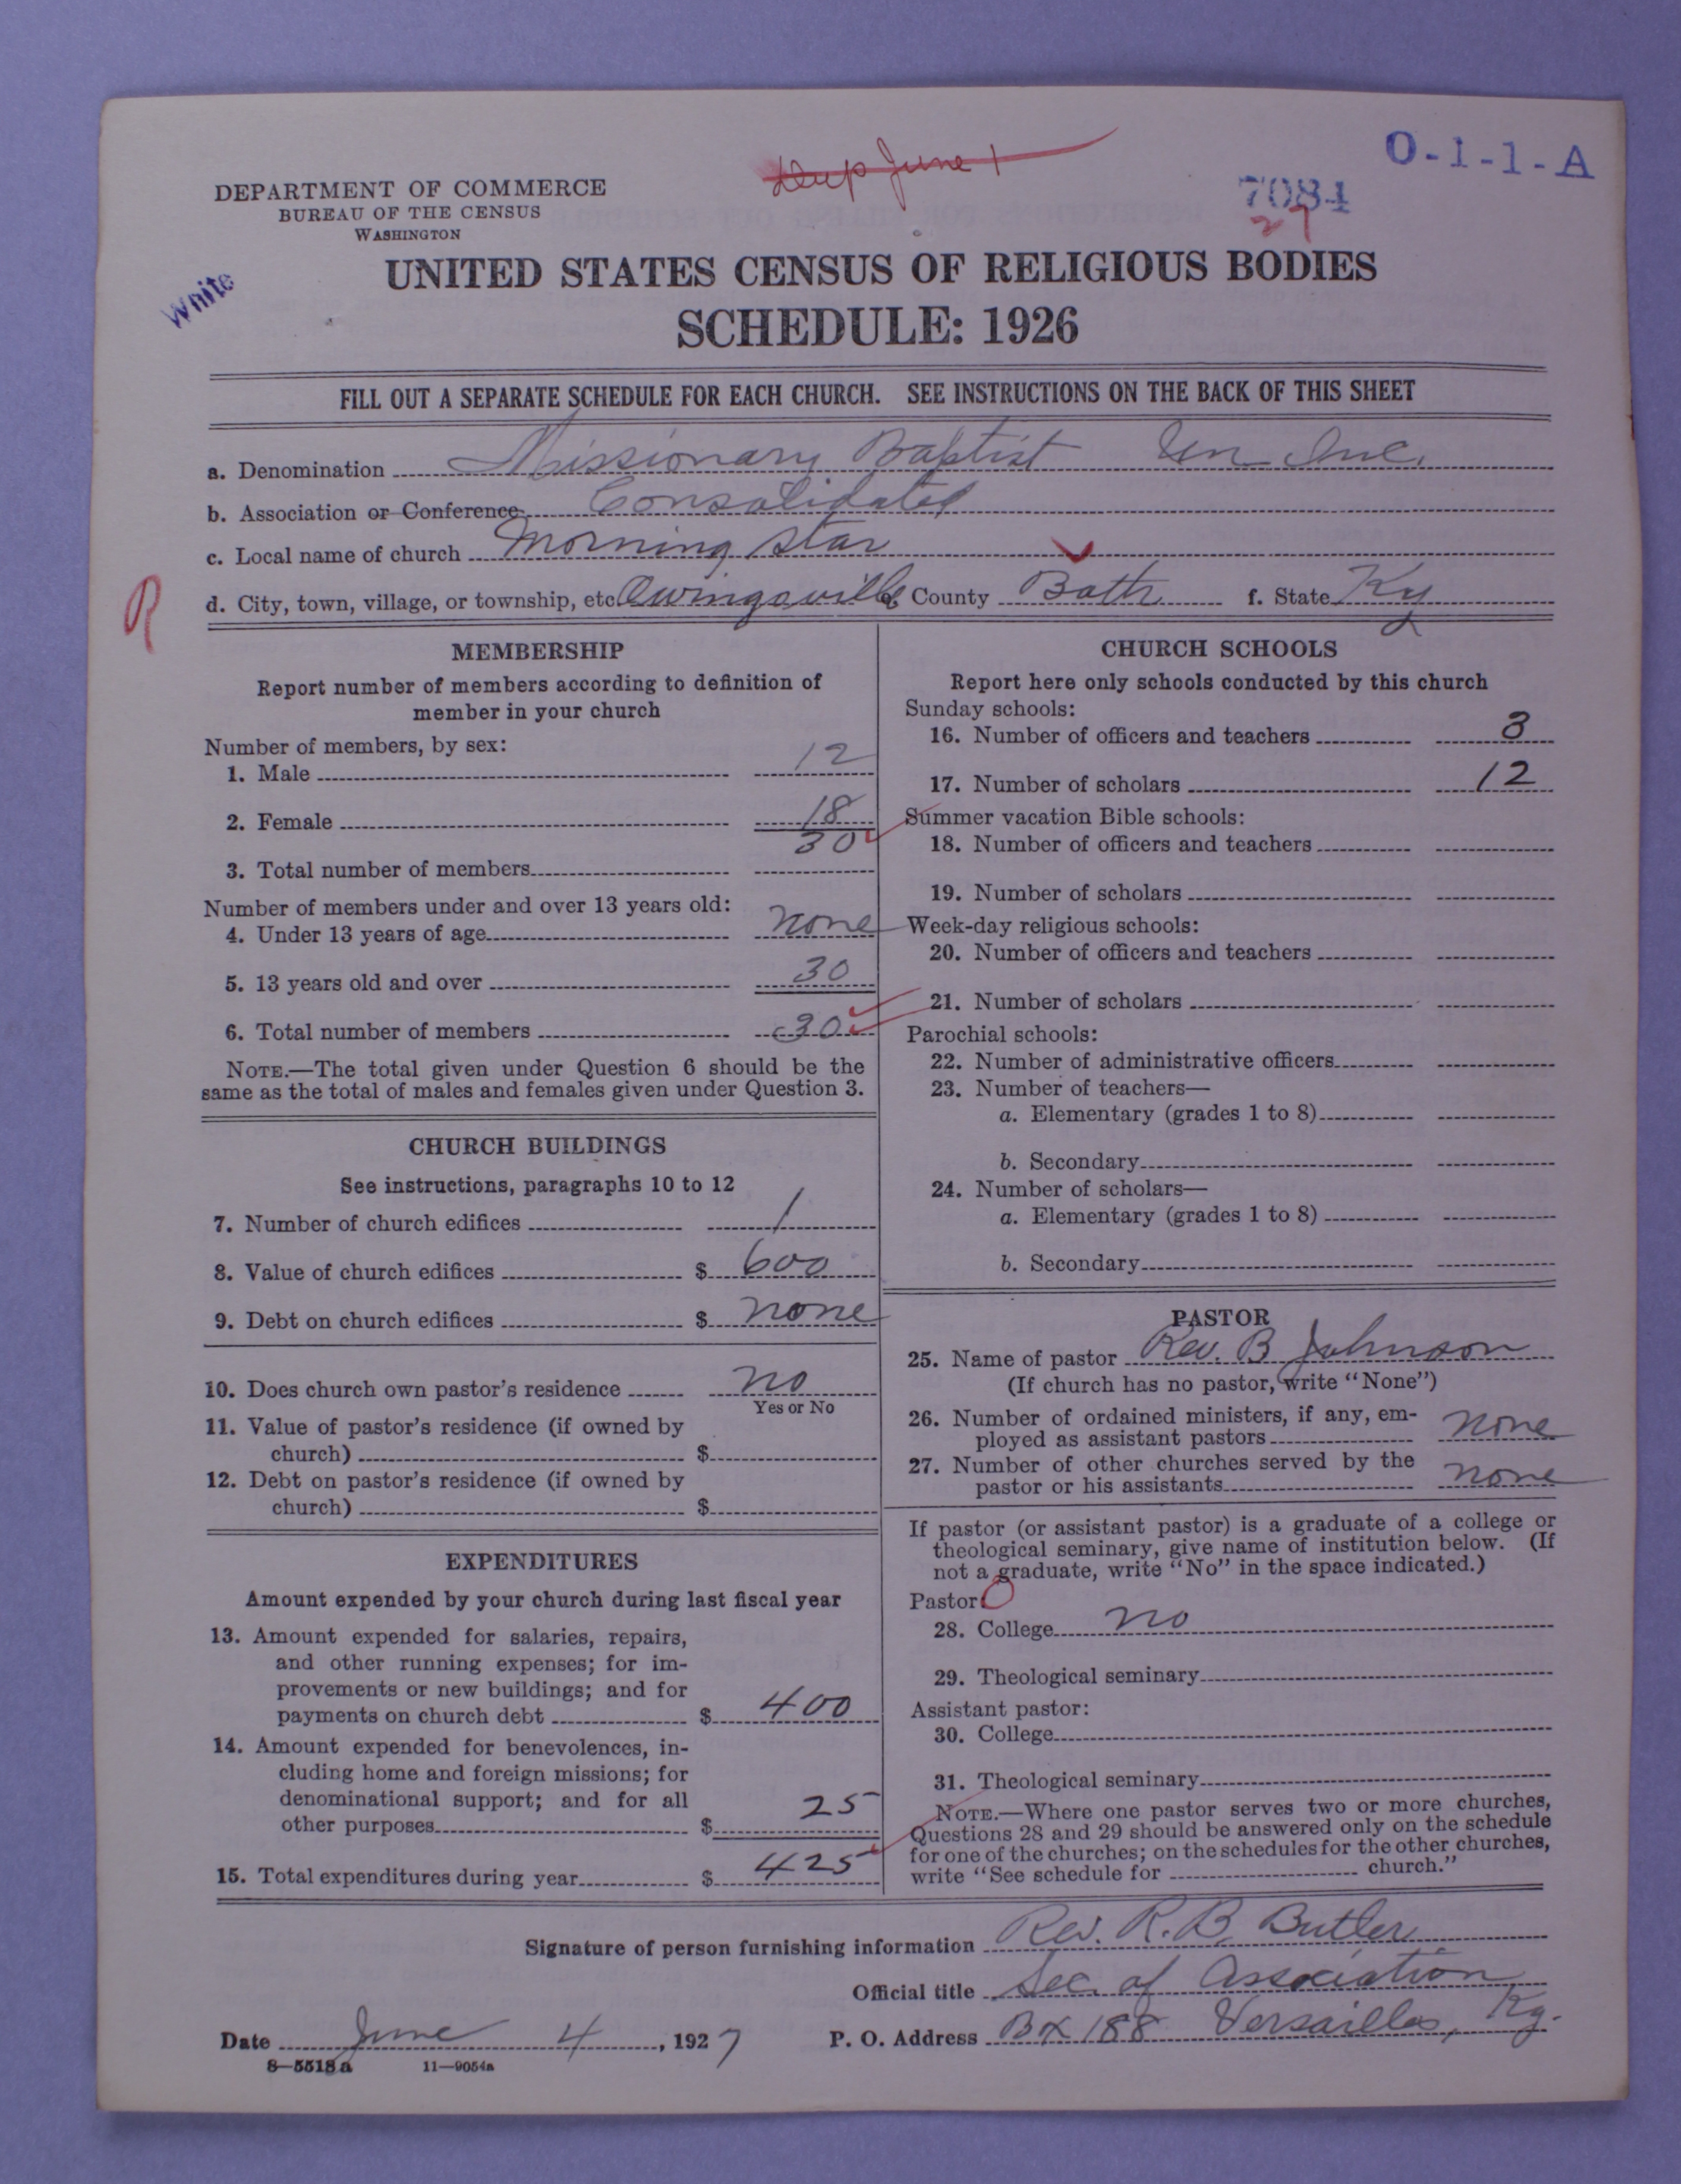 Dup June 1
O-1-1-A
7084
27
DEPARTMENT OF COMMERCE
BUREAU OF THE CENSUS
WASHINGTON
White
UNITED STATES CENSUS OF RELIGIOUS BODIES
SCHEDULE: 1926
FILL OUT A SEPARATE SCHEDULE FOR EACH CHURCH. SEE INSTRUCTIONS ON THE BACK OF THIS SHEET
a. Denomination Missionary Baptist Un Inc.
b. Association or Conference Consolidated
c. Local name of church Morning Star
R
d. City, town, village, or township, etc Owingsville e. County Bath f. State Ky
MEMBERSHIP
Report number of members according to definition of
member in your church
Number of members, by sex:
1. Male 12
2. Female 18
30
3. Total number of members
Number of members under and over 13 years old:
4. Under 13 years of age none
5. 13 years old and over 30
6. Total number of members 30
NOTE.—The total given under Question 6 should be the
same as the total of males and females given under Question 3.
CHURCH BUILDINGS
See instructions, paragraphs 10 to 12
7. Number of church edifices 1
8. Value of church edifices $ 600
9. Debt on church edifices $ none
10. Does church own pastor's residence no
Yes or No
11. Value of pastor's residence (if owned by
church) $
12. Debt on pastor's residence (if owned by
church) $
EXPENDITURES
Amount expended by your church during last fiscal year
13. Amount expended for salaries, repairs,
and other running expenses; for im-
provements or new buildings; and for
payments on church debt $ 400
14. Amount expended for benevolences, in-
cluding home and foreign missions; for
denominational support; and for all
other purposes $ 25
15. Total expenditures during year $ 425
CHURCH SCHOOLS
Report here only schools conducted by this church
Sunday schools:
16. Number of officers and teachers 3
17. Number of scholars 12
Summer vacation Bible schools:
18. Number of officers and teachers
19. Number of scholars
Week-day religious schools:
20. Number of officers and teachers
21. Number of scholars
Parochial schools:
22. Number of administrative officers
23. Number of teachers—
a. Elementary (grades 1 to 8)
b. Secondary
24. Number of scholars—
a. Elementary (grades 1 to 8)
b. Secondary
PASTOR
25. Name of pastor Rev. B Johnson
(If church has no pastor, write "None")
26. Number of ordained ministers, if any, em-
ployed as assistant pastors none
27. Number of other churches served by the
pastor or his assistants none
If pastor (or assistant pastor) is a graduate of a college or
theological seminary, give name of institution below. (If
not a graduate, write "No" in the space indicated.)
Pastor: 0
28. College no
29. Theological seminary
Assistant pastor:
30. College
31. Theological seminary
NOTE.—Where one pastor serves two or more churches,
Questions 28 and 29 should be answered only on the schedule
for one of the churches; on the schedules for the other churches,
write "See schedule for church."
Signature of person furnishing information Rev. R. B. Butler
Official title Sec. of Association
Date June 4, 1927 P. O. Address Bx 188 Versailles, Ky.
8-5518a 11-9054a